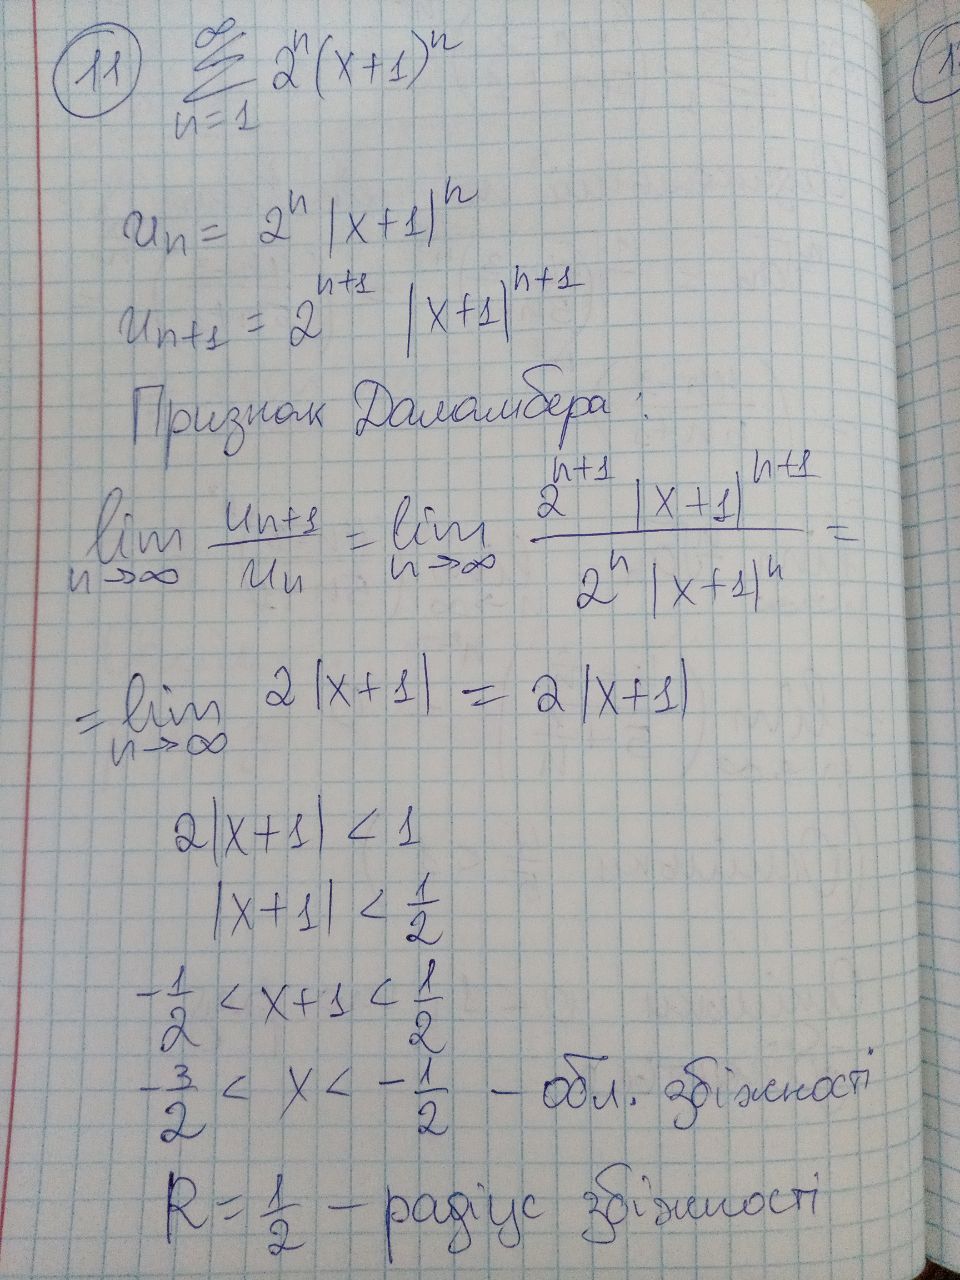 11 ∞
∑ 2^n (x+1)^n
n=1
u_n = 2^n |x+1|^n
u_{n+1} = 2^{n+1} |x+1|^{n+1}
Признак Даламбера:
lim_{n→∞} u_{n+1}/u_n = lim_{n→∞} (2^{n+1} |x+1|^{n+1})/(2^n |x+1|^n) =
= lim_{n→∞} 2|x+1| = 2|x+1|
2|x+1| < 1
|x+1| < 1/2
-1/2 < x+1 < 1/2
-3/2 < x < -1/2 - обл. збіжності
R = 1/2 - радіус збіжності